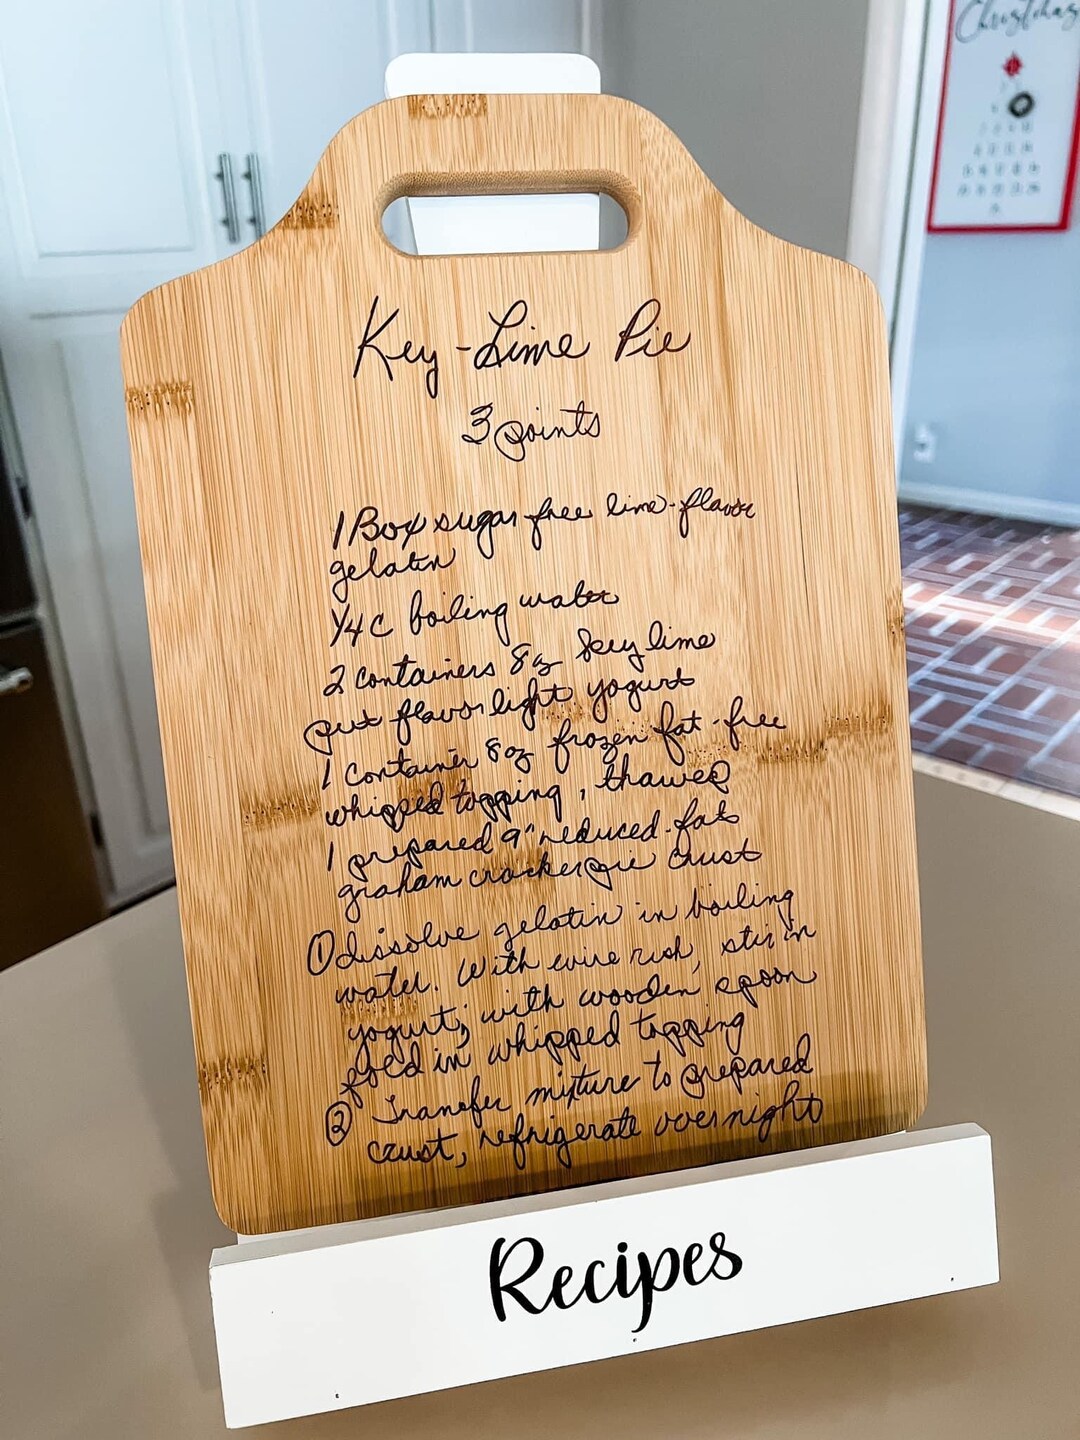 Christmas
Key-Lime Pie
3 points
1 Box sugar free lime-flavor
gelatin
1/4 C boiling water
2 containers 8oz key lime
pie flavor light yogurt
1 container 8oz frozen fat-free
whipped topping, thawed
1 prepared 9" reduced-fat
graham cracker pie crust
① dissolve gelatin in boiling
water. With wire, stir in
yogurt, with wooden spoon
fold in whipped topping
② Transfer mixture to prepared
crust, refrigerate overnight
Recipes